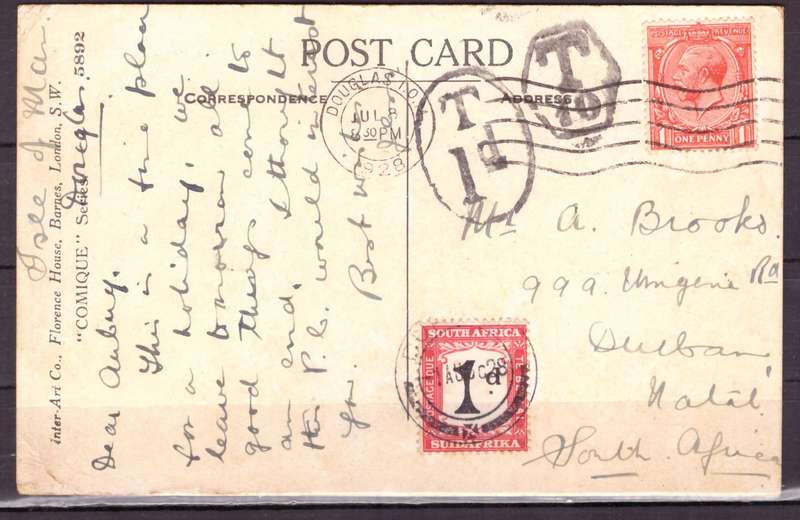 POST CARD
CORRESPONDENCE
ADDRESS
inter-Art Co., Florence House, Barnes, London, S.W.
"COMIQUE" Series 5892
Isle of Man.
Douglas.
Dear Aubury.
This is a fine place
for a holiday, we
leave tomorrow all
good things come to
an end, I thought
this P.C. would interest
you. Best
DOUGLAS I.O.
JUL 8
8 30 PM
1928
T
1d
T
10
POSTAGE REVENUE
1 ONE PENNY 1
Mr A. Brooks.
999. Umgeni Rd
Durban
Natal.
South Africa
SOUTH AFRICA
POSTAGE DUE
TE BETAAL
1d
SUIDAFRIKA
AUG 28